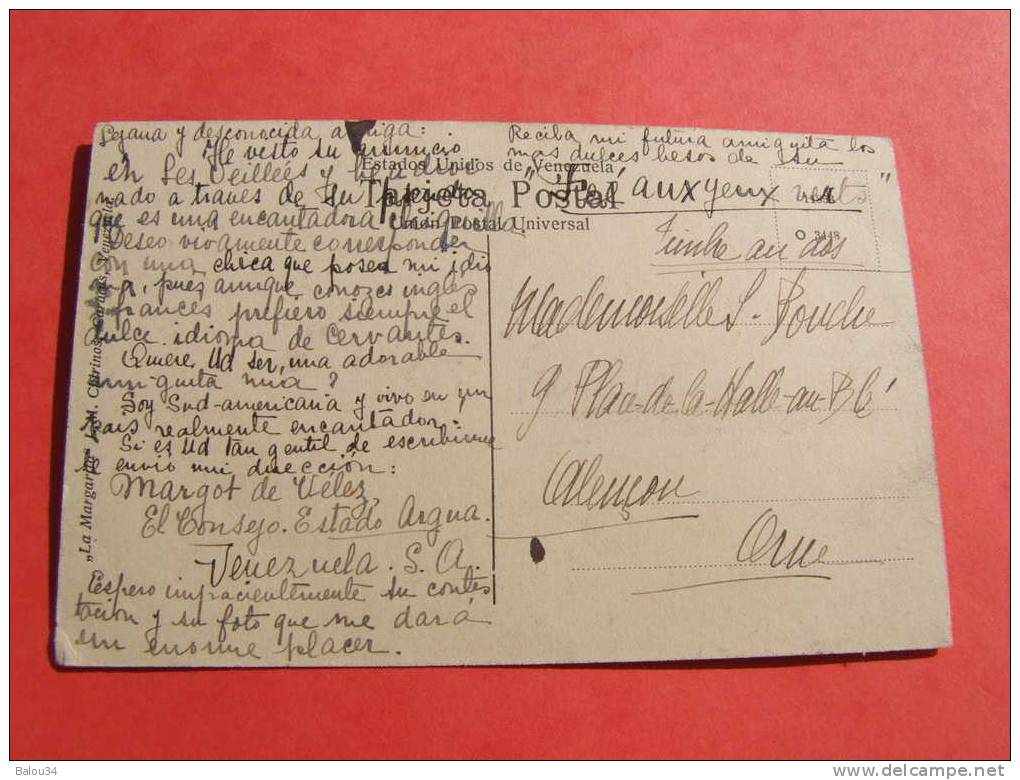 Lejana y desconocida amiga:
He visto su anuncio
en Les Veillées y he adivi
nado a traves de su
que es una encantadora chiquilla.
Deseo vivamente corresponder
con una chica que posea mi idio
ma, pues aunque conozco inglés
frances prefiero siempre el
dulce idioma de Cervantes.
Quiere Ud ser, una adorable
amiguita mia?
Soy Sud-americana y vivo en un
pais realmente encantador.
Si es Ud tan gentil de escribirme
le envio mi dirección:
Margot de Vélez
El Consejo. Estado Aragua.
Venezuela. S. A.
Espero impacientemente su contes
tacion y su foto que me dará
un enorme placer.
Reciba mi futura amiguita los
mas dulces besos de su
" aux yeux verts "
Timbre au dos
Mademoiselle S. Bouche
9 Place-de-la-Halle-au-Blé
Alençon
Orne
Estados Unidos de Venezuela
Tarjeta Postal
Unión Postal Universal
O 3448
„La Margarita" J. M. Chirinos, Caracas, Venezuela
Balou34
delcampe.net